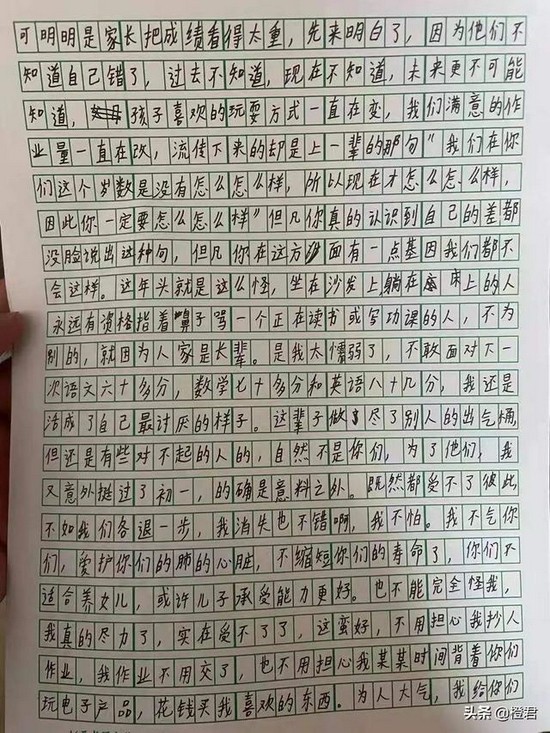 可明明是家长把成绩看得太重，先来明白了，因为他们不
知道自己错了，过去不知道，现在不知道，未来更不可能
知道，孩子喜欢的玩耍方式一直在变，我们满意的作
业量一直在改，流传下来的却是上一辈的那句"我们在你
们这个岁数是没有怎么怎么样，所以现在才怎么怎么样，
因此你一定要怎么怎么样"但凡你真的认识到自己的差都
没脸说出这种句，但凡你在这方面有一点基因我们都不
会这样。这年头就是这么怪，坐在沙发上躺在床上的人
永远有资格指着鼻子骂一个正在读书或写功课的人，不为
别的，就因为人家是长辈。是我太懦弱了，不敢面对下一
次语文六十多分，数学七十多分和英语八十几分，我还是
活成了自己最讨厌的样子。这辈子做尽了别人的出气桶，
但还是有些对不起的人的，自然不是你们，为了他们，我
又意外挺过了初一，的确是意料之外。既然都受不了彼此，
不如我们各退一步，我消失也不错啊，我不怕。我不气你
们，爱护你们的肺的心脏，不缩短你们的寿命了，你们不
适合养女儿，或许儿子承受能力更好。也不能完全怪我，
我真的尽力了，实在受不了了，这蛮好，不用担心我抄人
作业，我作业不用交了，也不用担心我某某时间背着你们
玩电子产品，花钱买我喜欢的东西。为人大气，我给你们
头条 @橙君